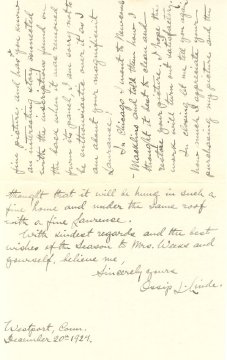 fine picture, and has you know
an interesting story connected
with the underground on
the back, which was used
for its panel, I am sorry not to
be enthusiastic over it as I
am about your magnificent
Laurense.
In Chicago I went to
Macklins and told them how I
thought it best to clean and
restore your picture, I hope the
work will turn out satisfactory.
In closing let me tell you again
how much I appreciate your
purchasing my picture and the
thought that it will be hung in such a
fine home and under the same roof
with a fine Laurense.
With kindest regards and the best
wishes of the Season to Mrs. Weiss and
yourself, believe me,
Sincerely yours
Ossip L. Linde.
Westport, Conn.
December 20th 1927.